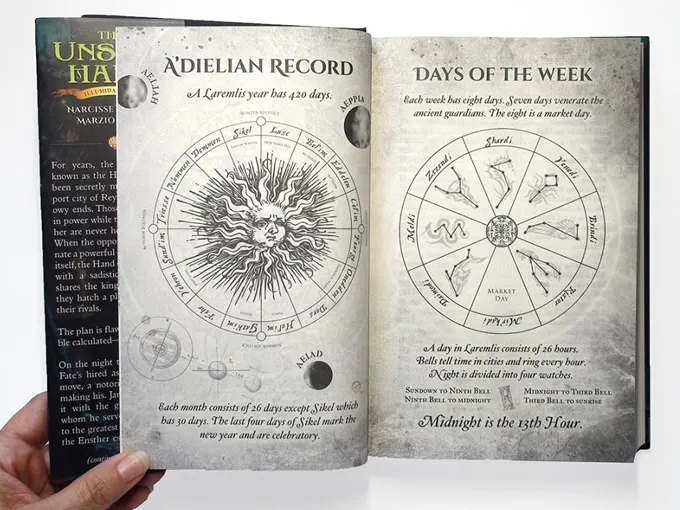 TH
UNS
HA
ILLUMIDA
NARCISSE
MARZIO
For years, the
known as the H
been secretly m
port city of Rey
owy ends. Those
in power while t
her are never he
When the oppor
nate a powerful
itself, the Hand
with a sadistic
shares the king
they hatch a pl
their rivals.
The plan is flaw
ble calculated—
On the night
Fate's hired as
move, a notori
making his. Jar
it with the g
whom he serve
to the greatest
the Ensther
(contin
A'DIELIAN RECORD
A Laremlis year has 420 days.
AELIAH
AEPPIA
WINTER SOLSTICE
Sikel
Luse
Bel'im
Eddelin
Calim
Dors
Hel'im
Gathim
Yebr
Yebren
Sund'im
Friesse
Nemmen
Demmen
SUMMER SOLSTICE
AEIAD
Each month consists of 26 days except Sikel which
has 30 days. The last four days of Sikel mark the
new year and are celebratory.
DAYS OF THE WEEK
Each week has eight days. Seven days venerate the
ancient guardians. The eight is a market day.
Shardi
Yenedi
Brindi
Mir'kadi
Daimodi
Moldi
Zezendi
MARKET
DAY
A day in Laremlis consists of 26 hours.
Bells tell time in cities and ring every hour.
Night is divided into four watches.
SUNDOWN TO NINTH BELL
NINTH BELL TO MIDNIGHT
MIDNIGHT TO THIRD BELL
THIRD BELL TO SUNRISE
Midnight is the 13th Hour.